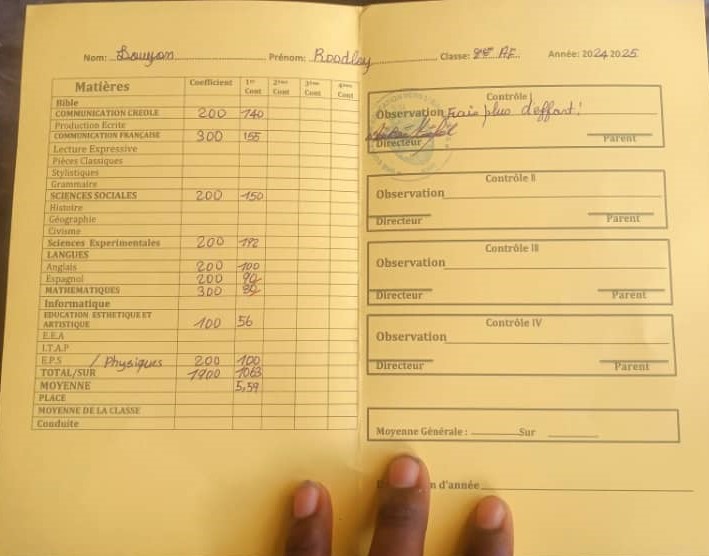 Nom: Prénom: Roodley Classe: AF Année: 2024 2025
Matières Coefficient 1er Cont 2ème Cont 3ème Cont 4ème Cont
Bible
COMMUNICATION CREOLE 200 140
Production Ecrite
COMMUNICATION FRANÇAISE 300 155
Lecture Expressive
Pièces Classiques
Stylistiques
Grammaire
SCIENCES SOCIALES 200 150
Histoire
Géographie
Civisme
Sciences Experimentales 200 192
LANGUES
Anglais 200 100
Espagnol 200 90
MATHEMATIQUES 300
Informatique
EDUCATION ESTHETIQUE ET
ARTISTIQUE 100 56
E.E.A
I.T.A.P
E.P.S / Physiques 200 100
TOTAL/SUR 1900 1063
MOYENNE 5,59
PLACE
MOYENNE DE LA CLASSE
Conduite
Contrôle I
Observation Frais plus d'effort!
Directeur Parent
Contrôle II
Observation
Directeur Parent
Contrôle III
Observation
Directeur Parent
Contrôle IV
Observation
Directeur Parent
Moyenne Générale : Sur
n d'année